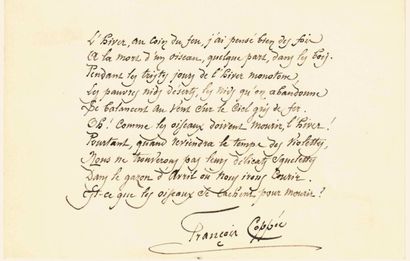 L'hiver, au coin du feu, j'ai pensé bien des fois
A la mort d'un oiseau, quelque part, dans les bois.
Pendant les tristes jours de l'hiver monotone
Les pauvres nids déserts, les nids qu'on abandonne
Se balancent au vent sur le Ciel gris de fer.
Oh ! Comme les oiseaux doivent mourir l'hiver !
Pourtant, quand reviendra le temps des violettes,
Nous ne trouverons pas leurs délicats Squelettes
Dans le gazon d'Avril où nous irons Courir.
Est-ce que les oiseaux se cachent pour mourir ?
François Coppée